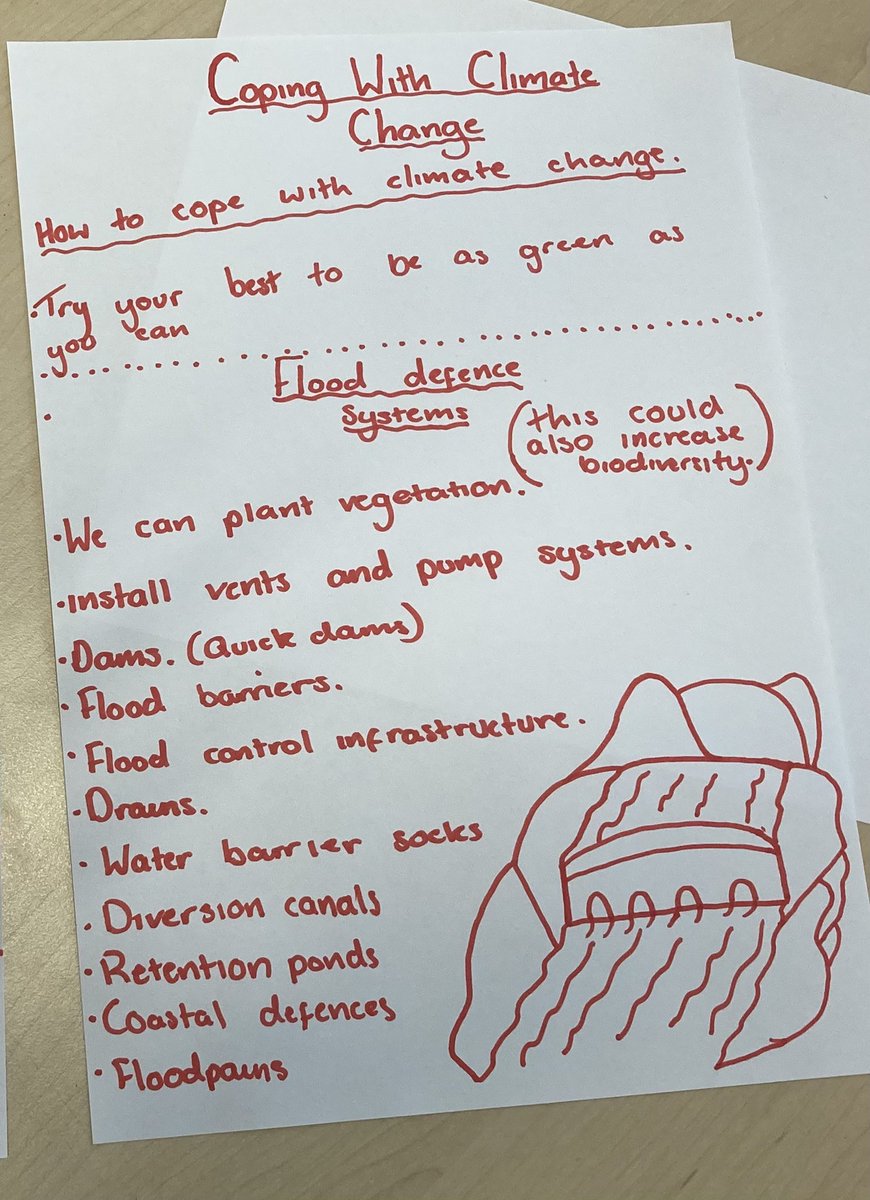 Coping With Climate
Change
How to cope with climate change.
•Try your best to be as green as
you can
Flood defence
Systems
(this could
also increase
biodiversity.)
•We can plant vegetation.
•Install vents and pump systems.
•Dams. (Quick dams)
•Flood barriers.
•Flood control infrastructure.
•Drains.
•Water barrier socks
•Diversion canals
•Retention ponds
•Coastal defences
•Floodpains